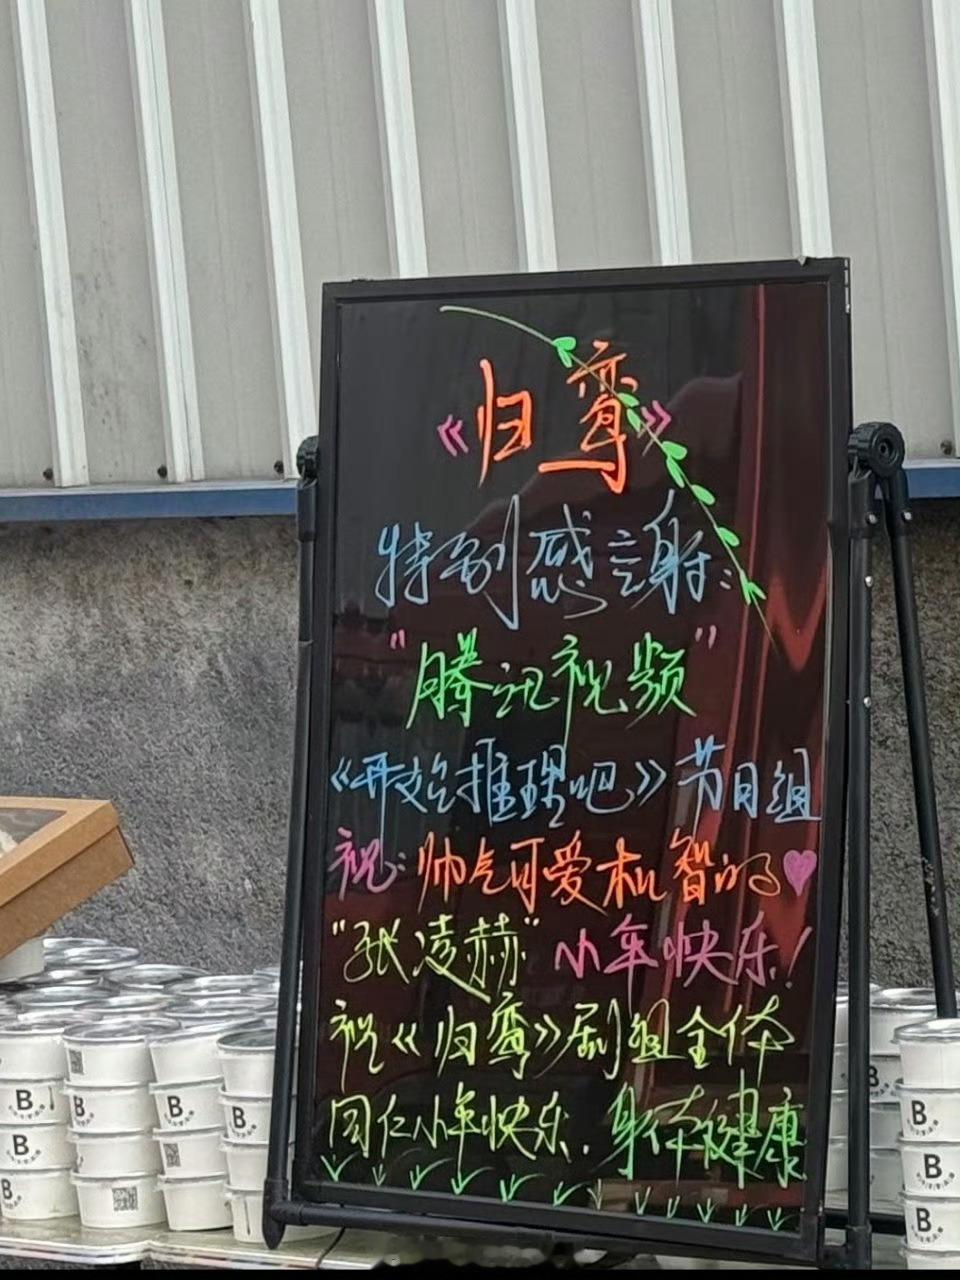 《归鸾》
特别感謝:
"腾讯视频"
《开始推理吧》节目组
祝:帅气可爱机智的
"张凌赫"小年快乐!
祝《归鸾》剧组全体
同仁小年快乐.身体健康
B
B
B
B
B
B
B
B
B
B
B